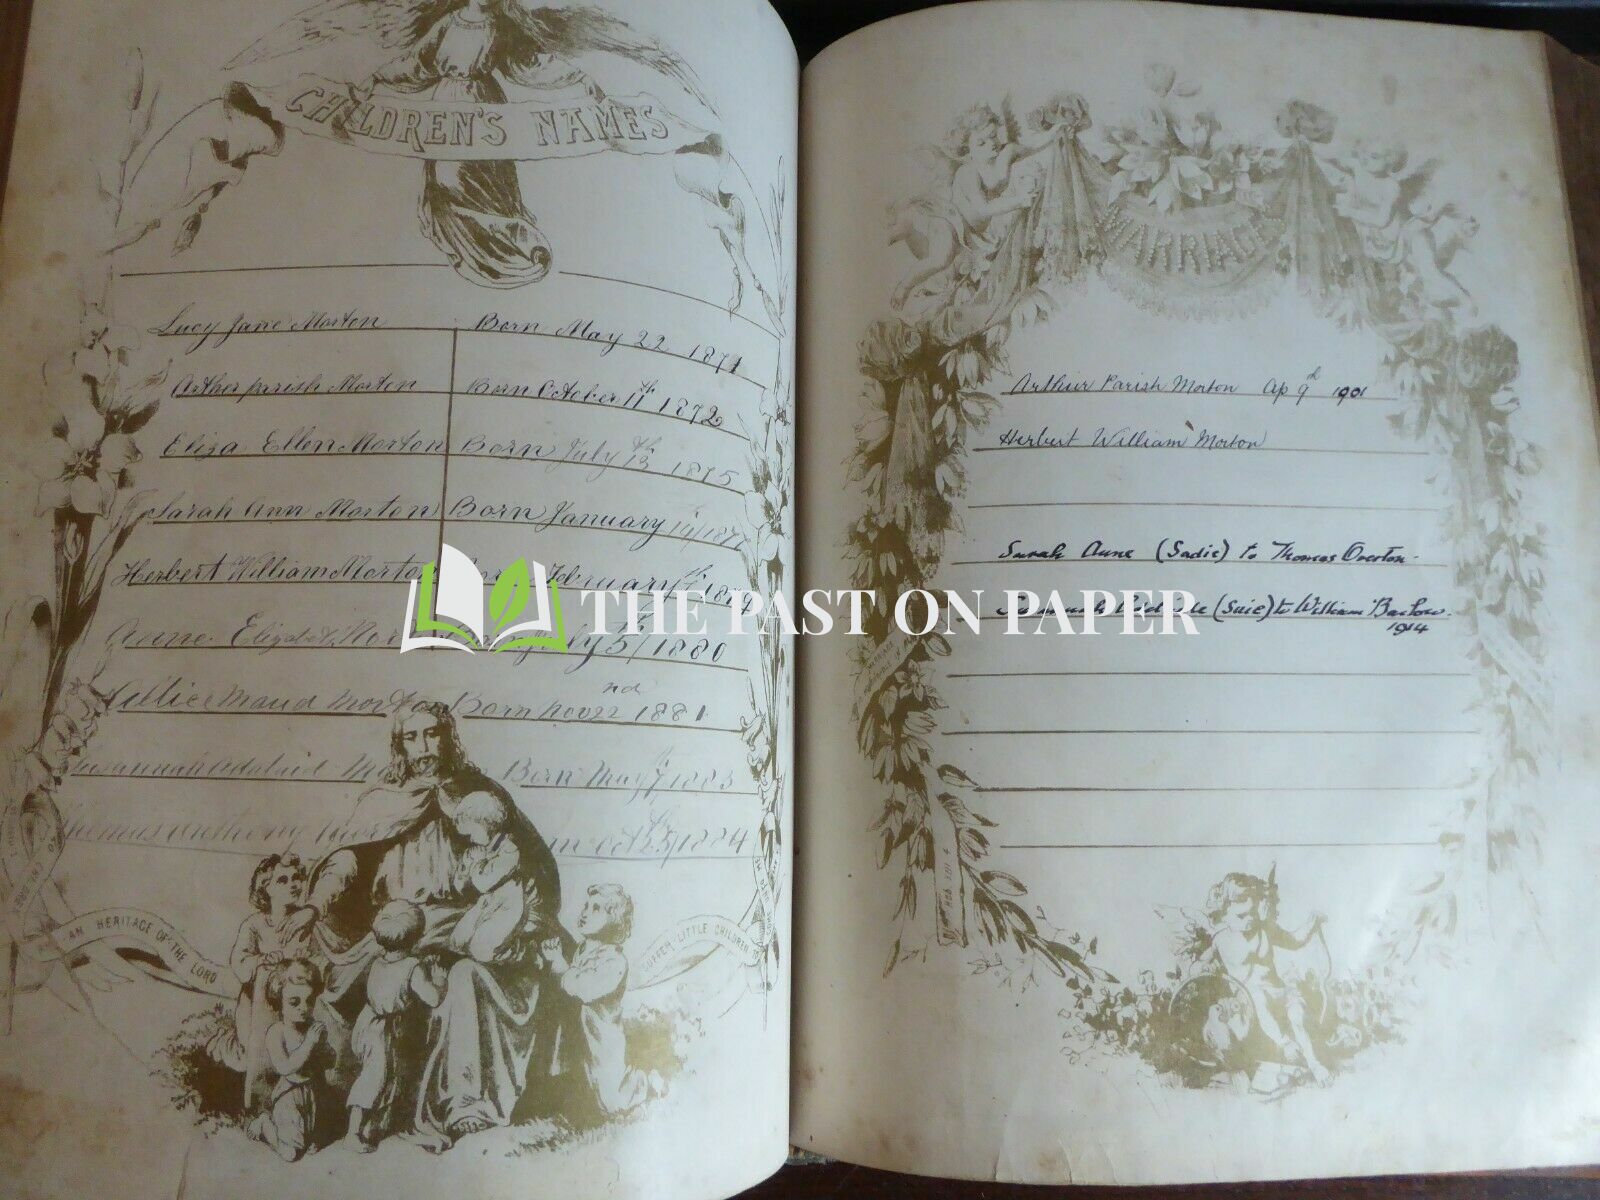 CHILDREN'S NAMES
Lucy Jane Morton Born May 22 1871
Arther parish Morton Born October 11th 1872
Eliza Ellen Morton Born July 13th 1875
Sarah Ann Morton Born January
Herbert William Morton February 7th 1879
Anne July 5th 1880
Allice Maud Morton Born Nov 22nd 1881
Adelaid Born May 7th 1883
Thomas Anthony 1884
AN HERITAGE OF THE LORD
SUFFER LITTLE CHILDREN
MARRIAGE
Arthur Parish Morton Ap 9th 1901
Herbert William Morton
Sarah Anne (Sadie) to Thomas Overton.
(Susie) to William Barlow.
1914
THE PAST ON PAPER